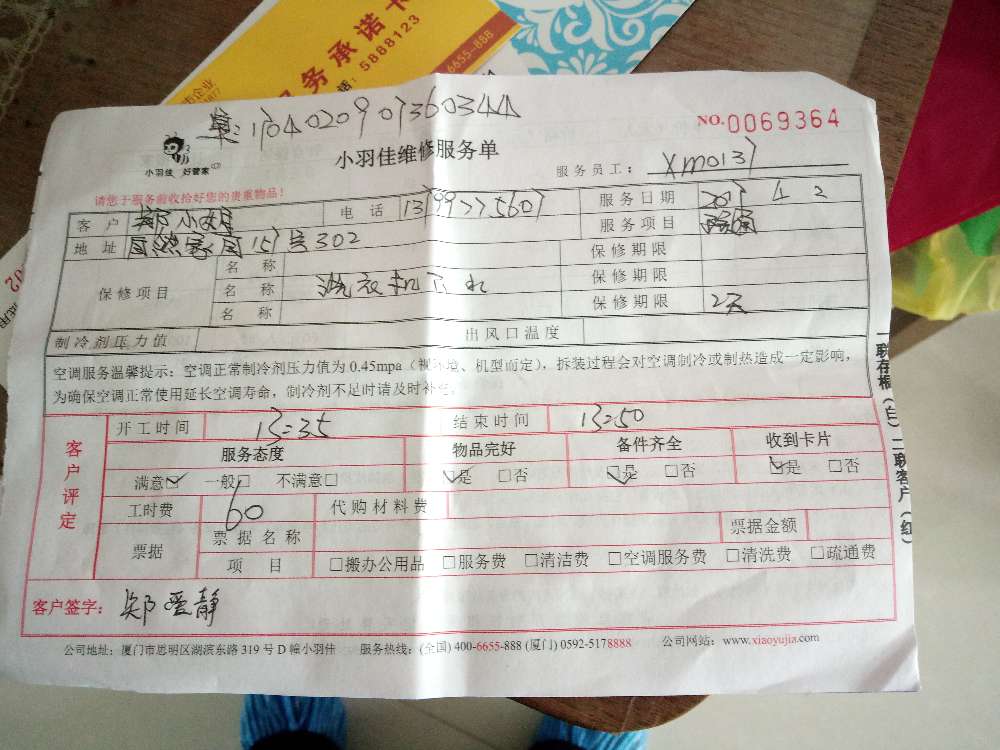 务承诺卡
5888123
6655-888
单:1704020907360344
NO.0069364
小羽佳 好管家
小羽佳维修服务单
服务员工: XM0137
请您于服务前收拾好您的贵重物品!
客户 郑小姐 电话 13799775607 服务日期 2017 4 2
地址 国 家园157号302 服务项目 疏通
名称 保修期限
保修项目 名称 洗衣机下水 保修期限
名称 保修期限 2天
制冷剂压力值 出风口温度
空调服务温馨提示:空调正常制冷剂压力值为0.45mpa(视环境、机型而定),拆装过程会对空调制冷或制热造成一定影响,
为确保空调正常使用延长空调寿命,制冷剂不足时请及时补充。
客户评定
开工时间 13:35 结束时间 13:50
服务态度 物品完好 备件齐全 收到卡片
满意☑ 一般□ 不满意□ ☑是 □否 ☑是 □否 ☑是 □否
工时费 60 代购材料费
票据 票据名称 票据金额
项目 □搬办公用品 □服务费 □清洁费 □空调服务费 □清洗费 □疏通费
客户签字: 郑爱静
公司地址:厦门市思明区湖滨东路319号D幢小羽佳 服务热线:(全国)400-6655-888 (厦门) 0592-5178888 公司网站:www.xiaoyujia.com
一联存根(白)二联客户(红)